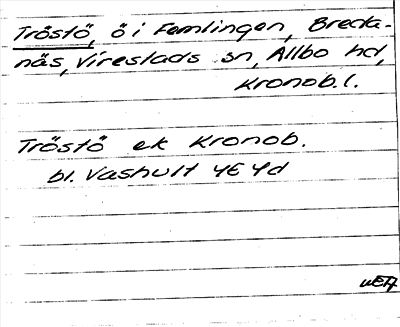 Tröstö, ö i Femlingen, Breda-
näs, Vireslads sn, Allbo hd,
Kronob. l.
Tröstö ek Kronob.
bl. Vashult 4E 4d